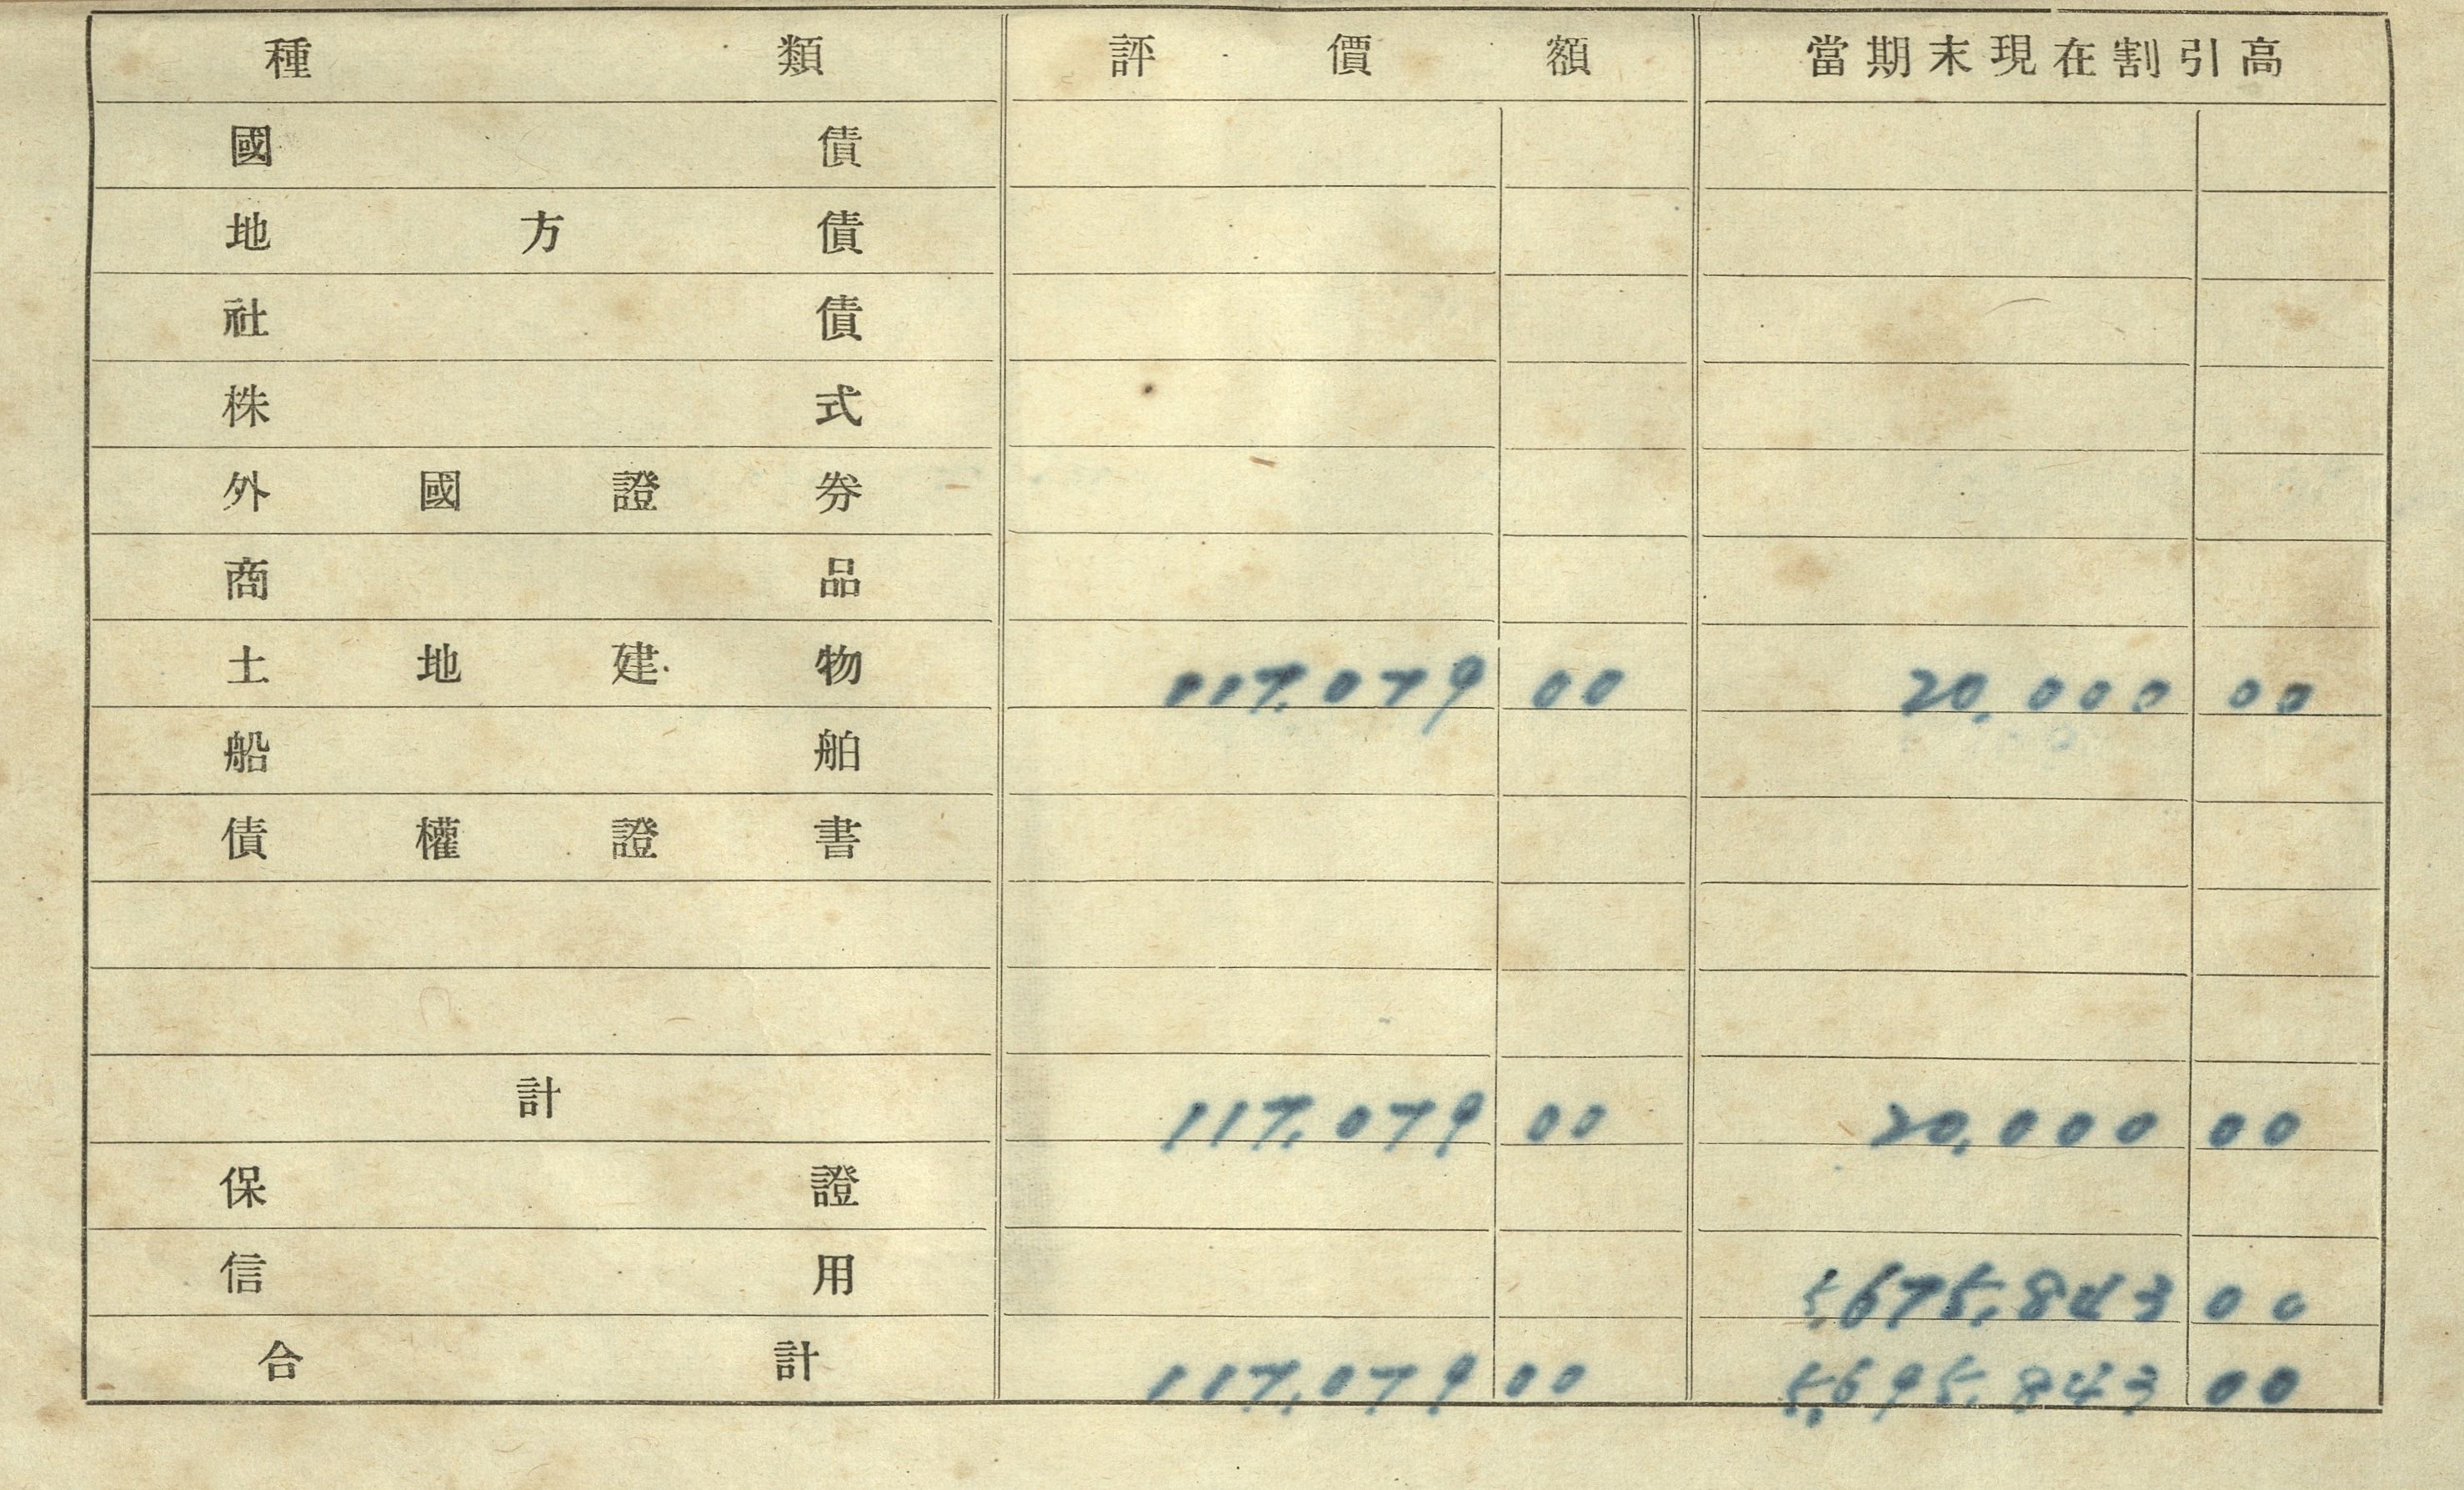 種類 評價額 當期末現在割引高
國債
地方債
社債
株式
外國證券
商品
土地建物 117,079 00 20,000 00
船舶
債權證書
計 117,079 00 20,000 00
保證
信用 5,675,843 00
合計 117,079 00 5,695,843 00